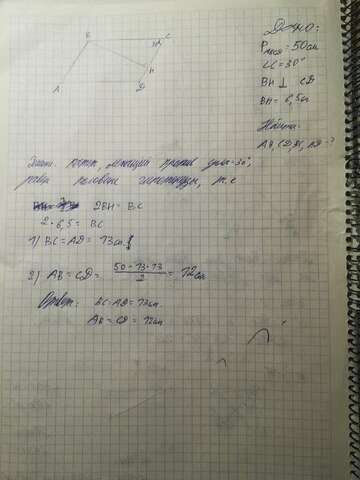 B C
30°
H
A D
Дано:
P = 50 см
∠C = 30°
BH ⊥ CD
BH = 6,5 см
Найти:
AB, CD, BC, AD - ?
катет, лежащий против угла 30°,
равен половине гипотенузы, т.е
2BH = BC
2·6,5 = BC
1) BC = AD = 13 см.
2) AB = CD = (50 - 13 - 13)/2 = 12 см
Ответ: BC = AD = 13 см.
AB = CD = 12 см